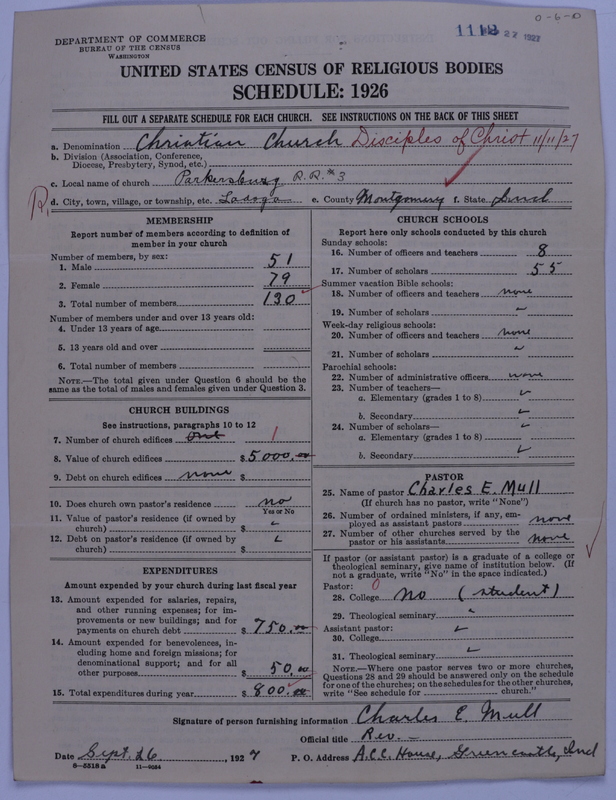 0-6-0
111B
27 1927
DEPARTMENT OF COMMERCE
BUREAU OF THE CENSUS
WASHINGTON
UNITED STATES CENSUS OF RELIGIOUS BODIES
SCHEDULE: 1926
FILL OUT A SEPARATE SCHEDULE FOR EACH CHURCH. SEE INSTRUCTIONS ON THE BACK OF THIS SHEET
a. Denomination Christian Church Disciples of Christ 11/11/27
b. Division (Association, Conference,
Diocese, Presbytery, Synod, etc.)
c. Local name of church Parkersburg R.R. #3
R, d. City, town, village, or township, etc. Ladoga e. County Montgomery f. State Ind
MEMBERSHIP
Report number of members according to definition of
member in your church
Number of members, by sex:
1. Male 51
2. Female 79
3. Total number of members 130
Number of members under and over 13 years old:
4. Under 13 years of age
5. 13 years old and over
6. Total number of members
NOTE.—The total given under Question 6 should be the
same as the total of males and females given under Question 3.
CHURCH BUILDINGS
See instructions, paragraphs 10 to 12
7. Number of church edifices one 1
8. Value of church edifices $ 5000.00
9. Debt on church edifices none $
10. Does church own pastor's residence no
Yes or No
11. Value of pastor's residence (if owned by
church) $
12. Debt on pastor's residence (if owned by
church) $
EXPENDITURES
Amount expended by your church during last fiscal year
13. Amount expended for salaries, repairs,
and other running expenses; for im-
provements or new buildings; and for
payments on church debt $ 750.00
14. Amount expended for benevolences, in-
cluding home and foreign missions; for
denominational support; and for all
other purposes $ 50.00
15. Total expenditures during year $ 800.00
CHURCH SCHOOLS
Report here only schools conducted by this church
Sunday schools:
16. Number of officers and teachers 8
17. Number of scholars 55
Summer vacation Bible schools:
18. Number of officers and teachers none
19. Number of scholars "
Week-day religious schools:
20. Number of officers and teachers none
21. Number of scholars "
Parochial schools:
22. Number of administrative officers none
23. Number of teachers—
a. Elementary (grades 1 to 8)
b. Secondary
24. Number of scholars—
a. Elementary (grades 1 to 8)
b. Secondary
PASTOR
25. Name of pastor Charles E. Mull
(If church has no pastor, write "None")
26. Number of ordained ministers, if any, em-
ployed as assistant pastors none
27. Number of other churches served by the
pastor or his assistants none
If pastor (or assistant pastor) is a graduate of a college or
theological seminary, give name of institution below. (If
not a graduate, write "No" in the space indicated.)
Pastor: 0
28. College No (student)
29. Theological seminary
Assistant pastor:
30. College
31. Theological seminary
NOTE.—Where one pastor serves two or more churches,
Questions 28 and 29 should be answered only on the schedule
for one of the churches; on the schedules for the other churches,
write "See schedule for church."
Signature of person furnishing information Charles E. Mull
Official title Rev.
Date Sept. 26, 1927 P. O. Address A.C.C. House, Greencastle, Ind
8-5518a 11-9054